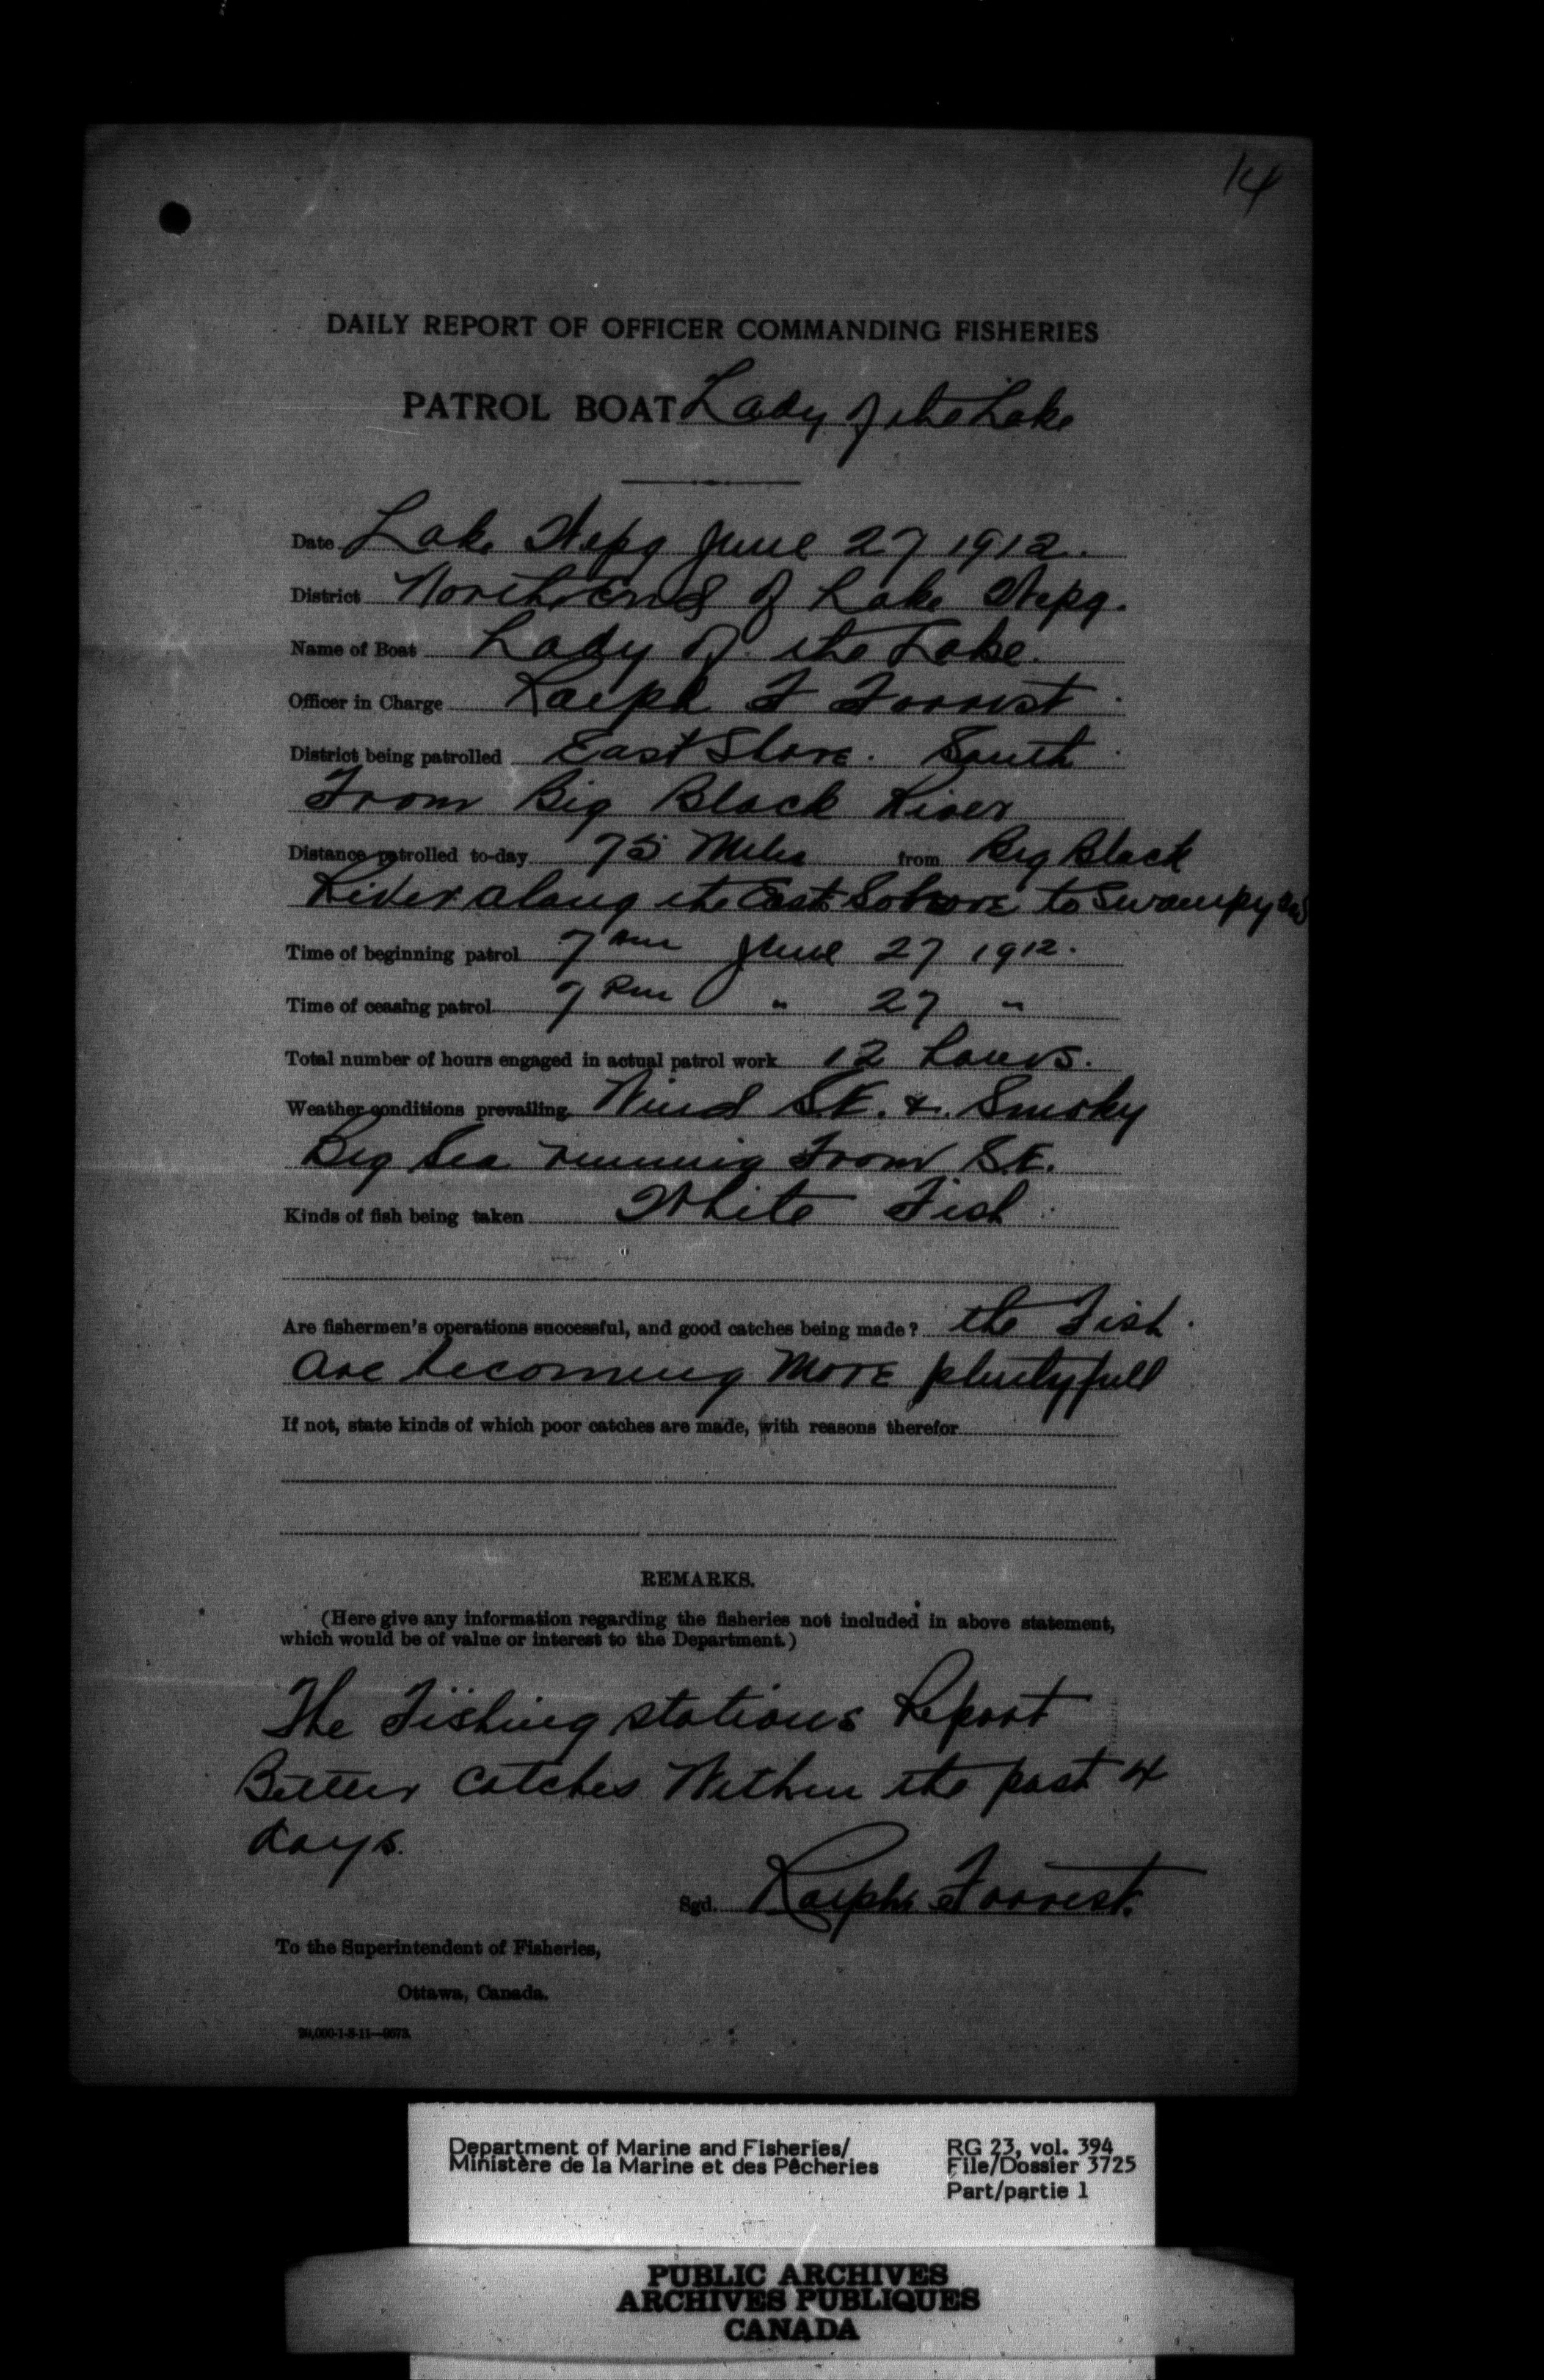 14
DAILY REPORT OF OFFICER COMMANDING FISHERIES
PATROL BOAT Lady of the Lake
Date Lake Wepg June 27 1912.
District North End of Lake Wepg.
Name of Boat Lady of the Lake.
Officer in Charge Ralph F Forrest
District being patrolled East Shore. South
From Big Black River
Distance patrolled to-day 75 Miles from Big Black
River along the East Sohore to Swampy
Time of beginning patrol 7 am June 27 1912.
Time of ceasing patrol 7 Pm " 27 "
Total number of hours engaged in actual patrol work 12 hours.
Weather conditions prevailing Wind S.E. & Smoky
Big Sea running From S.E.
Kinds of fish being taken White Fish
Are fishermen's operations successful, and good catches being made? the Fish
are becoming More plentyfull
If not, state kinds of which poor catches are made, with reasons therefor
REMARKS.
(Here give any information regarding the fisheries not included in above statement,
which would be of value or interest to the Department.)
The Fishing stations Report
Better Catches Within the past 4
days.
Sgd. Ralph Forrest.
To the Superintendent of Fisheries,
Ottawa, Canada.
20,000-1-8-11—9673.
Department of Marine and Fisheries/
Ministère de la Marine et des Pêcheries
RG 23, vol. 394
File/Dossier 3725
Part/partie 1
PUBLIC ARCHIVES
ARCHIVES PUBLIQUES
CANADA